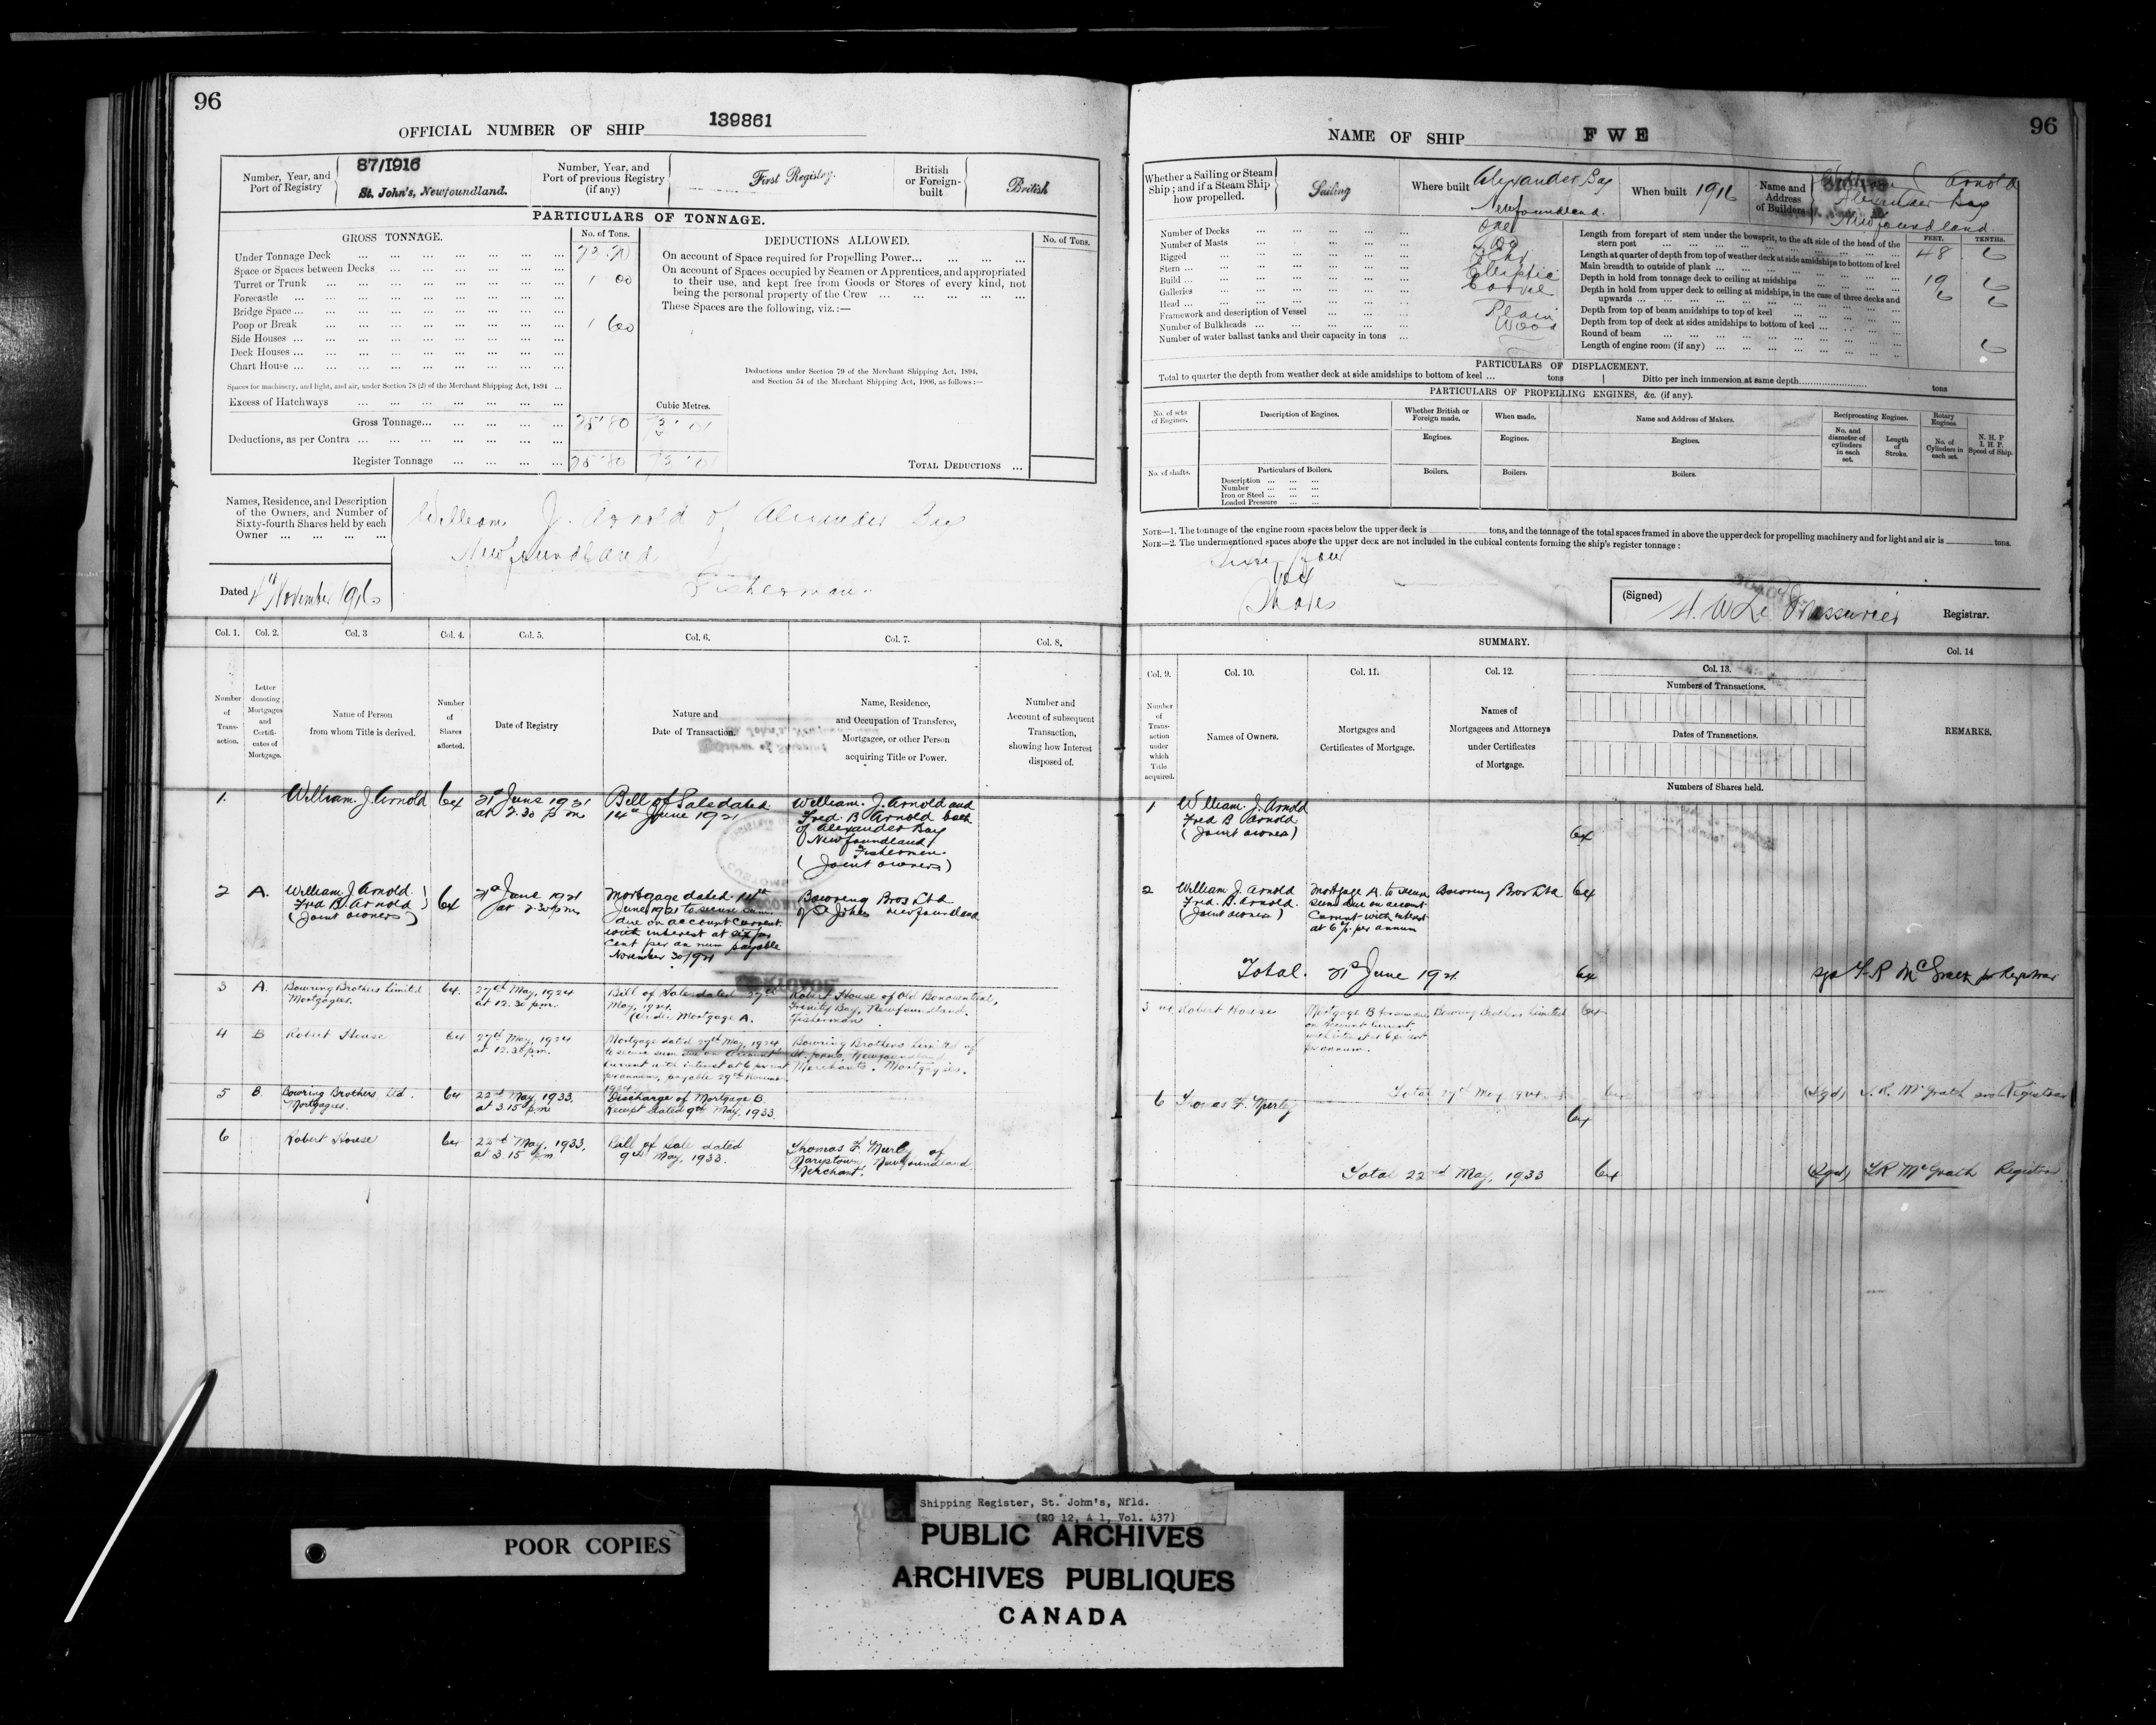 96
OFFICIAL NUMBER OF SHIP 139861
Number, Year, and
Port of Registry
87/1916
St. John's, Newfoundland.
Number, Year, and
Port of previous Registry
(if any)
First Registry.
British
or Foreign-
built
British
PARTICULARS OF TONNAGE.
GROSS TONNAGE.
No. of Tons.
Under Tonnage Deck
Space or Spaces between Decks
Turret or Trunk 1 00
Forecastle
Bridge Space
Poop or Break 1 60
Side Houses
Deck Houses
Chart House
Spaces for machinery, and light, and air, under Section 78 (2) of the Merchant Shipping Act, 1894
Excess of Hatchways
Cubic Metres.
Gross Tonnage 25.80 73.01
Deductions, as per Contra
Register Tonnage 25.80 73.01
DEDUCTIONS ALLOWED.
No. of Tons.
On account of Space required for Propelling Power
On account of Spaces occupied by Seamen or Apprentices, and appropriated
to their use, and kept free from Goods or Stores of every kind, not
being the personal property of the Crew
These Spaces are the following, viz.:—
Deductions under Section 79 of the Merchant Shipping Act, 1894,
and Section 54 of the Merchant Shipping Act, 1906, as follows:—
TOTAL DEDUCTIONS
Names, Residence, and Description
of the Owners, and Number of
Sixty-fourth Shares held by each
Owner
William J. Arnold of Alexander Bay
Newfoundland
Fisherman
Dated 4th November 1916
Col. 1.
Col. 2.
Col. 3
Col. 4.
Col. 5.
Col. 6.
Col. 7.
Col. 8.
Number
of
Trans-
action.
Letter
denoting
Mortgages
and
Certifi-
cates of
Mortgage.
Name of Person
from whom Title is derived.
Number
of
Shares
affected.
Date of Registry
Nature and
Date of Transaction.
Name, Residence,
and Occupation of Transferee,
Mortgagee, or other Person
acquiring Title or Power.
Number and
Account of subsequent
Transaction,
showing how Interest
disposed of.
1.
William. J. Arnold
64
21st June 1921
at 2.30 p m
Bill of Sale dated
14th June 1921
William. J. Arnold and
Fred. B Arnold both
of Alexander Bay
Newfoundland
Fishermen.
(Joint owners)
2
A.
William. J. Arnold.
Fred B. Arnold
(Joint owners)
64
21st June 1921
at 2.30 p m
Mortgage dated 14th
June 1921 to secure sum
due on account current
with interest at six per
cent per annum payable
November 30/1921
Bowring Bros Ltd
of St Johns Newfoundland
3
A.
Bowring Brothers Limited
Mortgagees.
64.
27th May, 1924
at 12.30 p.m.
Bill of Sale dated 27th
May, 1924.
(Under Mortgage A.
Robert House of Old Bonaventure,
Trinity Bay, Newfoundland.
Fisherman
4
B
Robert House
64
27th May, 1924
at 12.30 p.m.
Mortgage dated 27th May, 1924
to secure sum due on Account
current with interest at 6 per cent
per annum, payable 29th November
1924
Bowring Brothers Limited of
St. Johns, Newfoundland
Merchants. Mortgagees.
5
B.
Bowring Brothers, Ltd.
Mortgagees.
64
22nd May, 1933.
at 3.15 p.m
Discharge of Mortgage B.
Receipt dated 9th May, 1933.
6
Robert House
64
22nd May, 1933,
at 3.15 pm
Bill of Sale dated
9th May, 1933.
Marystown, Newfoundland,
Merchant.
96
NAME OF SHIP FWE
Whether a Sailing or Steam
Ship; and if a Steam Ship
how propelled.
Sailing
Where built
Alexander Bay
Newfoundland.
When built 1916
Name and
Address
of Builders
Arnold
Alexander Bay
Newfoundland.
Number of Decks One
Number of Masts Two
Rigged Schr
Stern Elliptic
Build Carvel
Galleries
Head Plain
Framework and description of Vessel Wood
Number of Bulkheads
Number of water ballast tanks and their capacity in tons
FEET. TENTHS.
Length from forepart of stem under the bowsprit, to the aft side of the head of the
stern post 48 6
Length at quarter of depth from top of weather deck at side amidships to bottom of keel
Main breadth to outside of plank 19 6
Depth in hold from tonnage deck to ceiling at midships 6 6
Depth in hold from upper deck to ceiling at midships, in the case of three decks and
upwards
Depth from top of beam amidships to top of keel
Depth from top of deck at sides amidships to bottom of keel
Round of beam
Length of engine room (if any)
PARTICULARS OF DISPLACEMENT.
Total to quarter the depth from weather deck at side amidships to bottom of keel tons
Ditto per inch immersion at same depth tons
PARTICULARS OF PROPELLING ENGINES, &c. (if any).
No. of sets
of Engines.
Description of Engines.
Whether British or
Foreign made.
When made.
Name and Address of Makers.
Reciprocating Engines.
Rotary
Engines.
N. H. P
I. H. P.
Speed of Ship.
Engines.
Engines.
Engines.
No. and
diameter of
cylinders
in each
set.
Length
of
Stroke.
No. of
Cylinders in
each set.
No. of shafts.
Particulars of Boilers.
Boilers.
Boilers.
Boilers.
Description
Number
Iron or Steel
Loaded Pressure
NOTE—1. The tonnage of the engine room spaces below the upper deck is tons, and the tonnage of the total spaces framed in above the upper deck for propelling machinery and for light and air is tons.
NOTE—2. The undermentioned spaces above the upper deck are not included in the cubical contents forming the ship's register tonnage:
Sixty four
64
Shares
(Signed) H. W. Le Messurier Registrar.
SUMMARY.
Col. 9.
Col. 10.
Col. 11.
Col. 12.
Col. 13.
Col. 14
Number
of
Trans-
action
under
which
Title
acquired.
Names of Owners.
Mortgages and
Certificates of Mortgage.
Names of
Mortgagees and Attorneys
under Certificates
of Mortgage.
Numbers of Transactions.
Dates of Transactions.
Numbers of Shares held.
REMARKS.
1
William. J. Arnold
Fred B Arnold
(Joint owners)
64
2
William. J. Arnold
Fred. B. Arnold.
(Joint owners)
Mortgage A. to secure
sum due on account
Current with interest
at 6 %. per annum
Bowring Bros Ltd
64
Total. 21st June 1921. 64
3
Robert House
on Account Current
with interest at 6 per cent
per annum.
Bowring Brothers Limited
64
Total 27th May 1924 64 (Sgd) McGrath pro Registrar
6
64
Total 22nd May, 1933 64 (Sgd) McGrath Registrar
POOR COPIES
Shipping Register, St. John's, Nfld.
(RG 12, A 1, Vol. 437)
PUBLIC ARCHIVES
ARCHIVES PUBLIQUES
CANADA